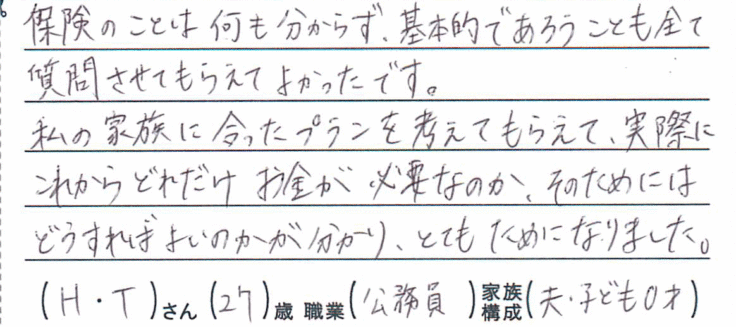 保険のことは何も分からず、基本的であろうことも全て
質問させてもらえてよかったです。
私の家族に合ったプランを考えてもらえて、実際に
これからどれだけお金が必要なのか、そのためには
どうすればよいのかが分かり、とてもためになりました。
(H・T)さん (27)歳 職業(公務員)家族構成(夫・子ども0才)